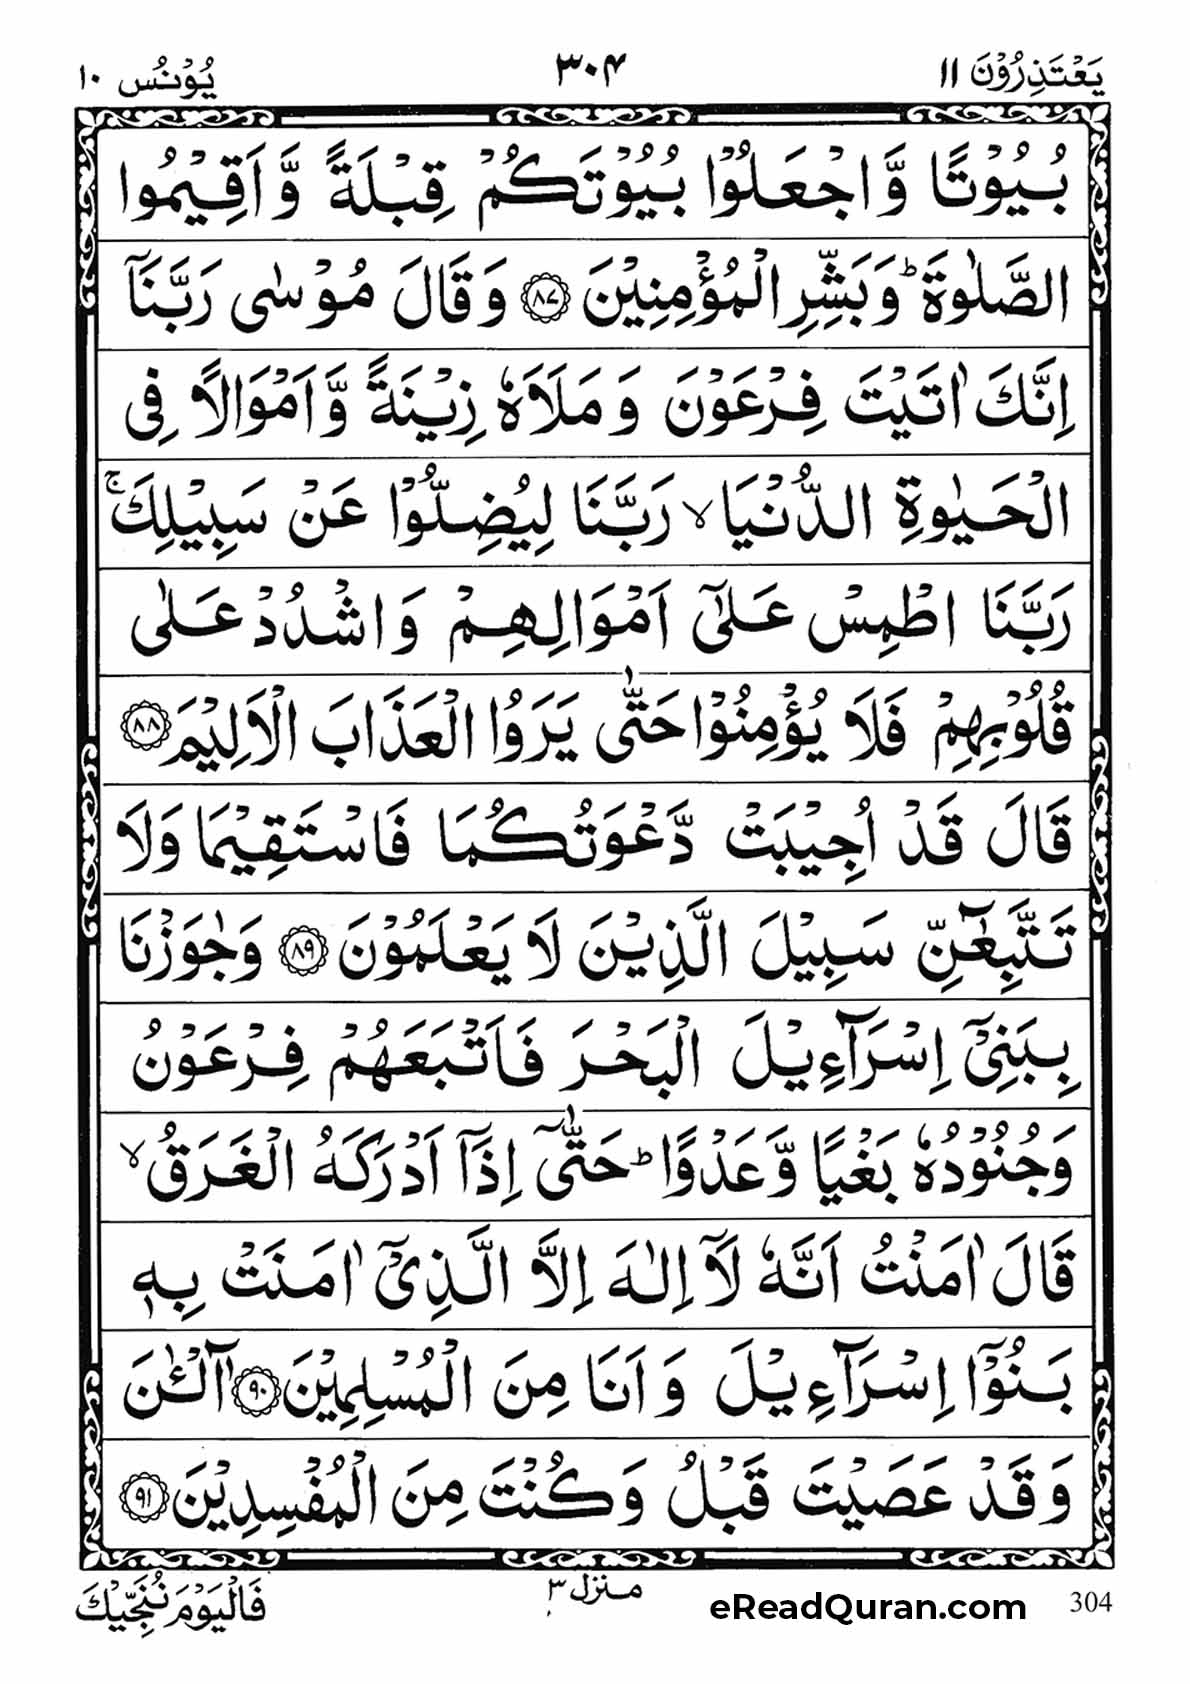 يَعْتَذِرُوْنَ ١١
٣٠۴
يُوْنُس ١٠
بُيُوْتًا وَّاجْعَلُوْا بُيُوْتَكُمْ قِبْلَةً وَّاَقِيْمُوا
الصَّلٰوةَ ؕ وَبَشِّرِ الْمُؤْمِنِيْنَ ﴿۸۷﴾ وَقَالَ مُوْسٰى رَبَّنَاۤ
اِنَّكَ اٰتَيْتَ فِرْعَوْنَ وَمَلَاَهٗ زِيْنَةً وَّاَمْوَالًا فِى
الْحَيٰوةِ الدُّنْيَا ۙ رَبَّنَا لِيُضِلُّوْا عَنْ سَبِيْلِكَ ۚ
رَبَّنَا اطْمِسْ عَلٰٓى اَمْوَالِهِمْ وَاشْدُدْ عَلٰى
قُلُوْبِهِمْ فَلَا يُؤْمِنُوْا حَتّٰى يَرَوُا الْعَذَابَ الْاَلِيْمَ ﴿۸۸﴾
قَالَ قَدْ اُجِيْبَتْ دَّعْوَتُكُمَا فَاسْتَقِيْمَا وَلَا
تَتَّبِعٰٓنِّ سَبِيْلَ الَّذِيْنَ لَا يَعْلَمُوْنَ ﴿۸۹﴾ وَجٰوَزْنَا
بِبَنِىْۤ اِسْرَآءِيْلَ الْبَحْرَ فَاَتْبَعَهُمْ فِرْعَوْنُ
وَجُنُوْدُهٗ بَغْيًا وَّعَدْوًا ؕ حَتّٰىۤ اِذَاۤ اَدْرَكَهُ الْغَرَقُ ۙ
قَالَ اٰمَنْتُ اَنَّهٗ لَاۤ اِلٰهَ اِلَّا الَّذِىْۤ اٰمَنَتْ بِهٖ
بَنُوْۤا اِسْرَآءِيْلَ وَاَنَا مِنَ الْمُسْلِمِيْنَ ﴿۹۰﴾ آٰلْئٰنَ
وَقَدْ عَصَيْتَ قَبْلُ وَكُنْتَ مِنَ الْمُفْسِدِيْنَ ﴿۹۱﴾
فَالْيَوْمَ نُنَجِّيْكَ
منزل ٣
eReadQuran.com
304